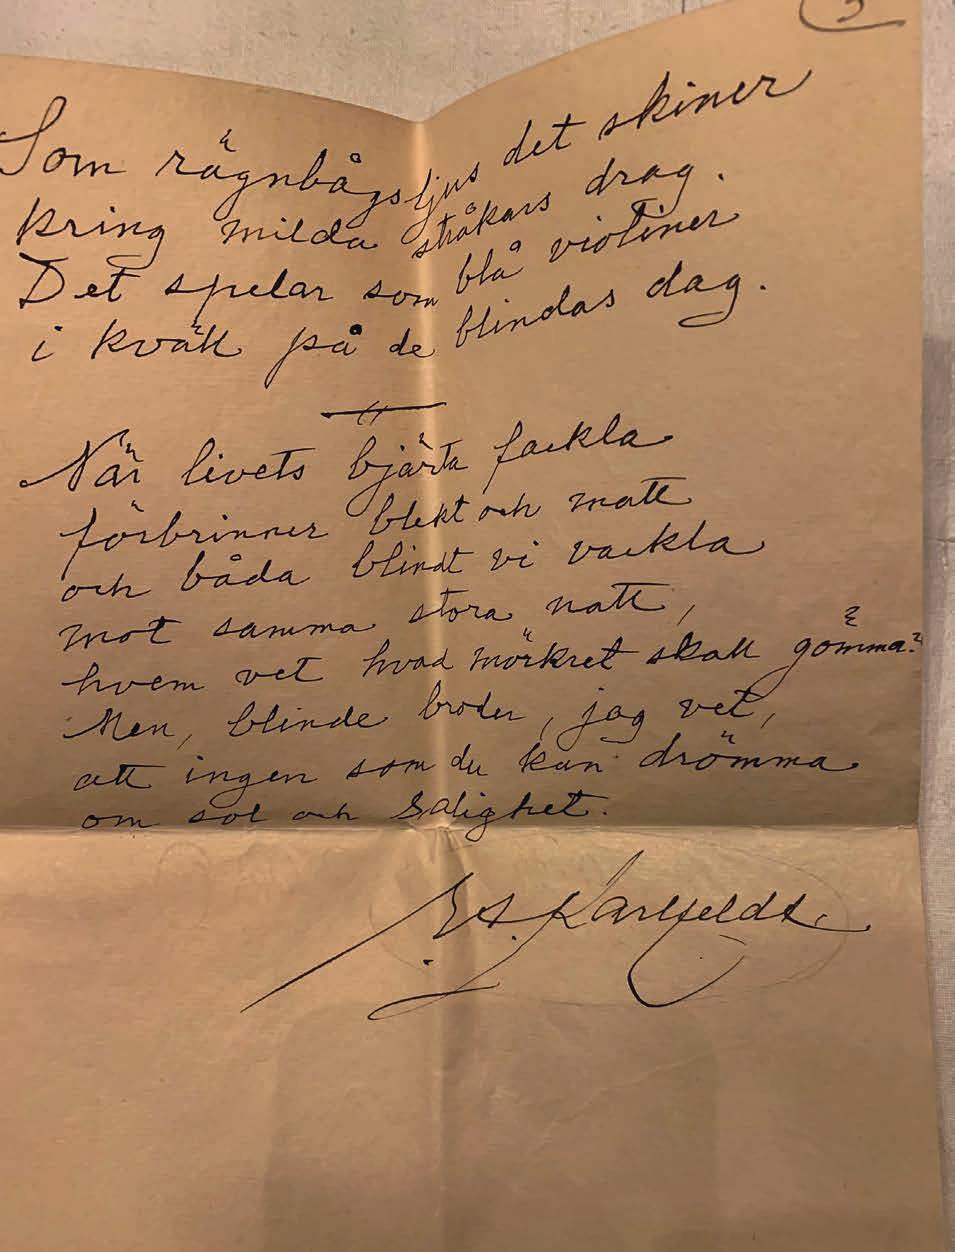 3
Som rägnbågsljus det skiner
kring milda stråkars drag.
Det spelar som blå violiner
i kväll på de blindas dag.
När livets bjärta fackla
förbrinner blekt och matt
och båda blindt vi vackla
mot samma stora natt,
hvem vet hvad mörkret skall gömma?
Men, blinde broder, jag vet,
att ingen som du kan drömma
om sol och salighet.
E A. Karlfeldt